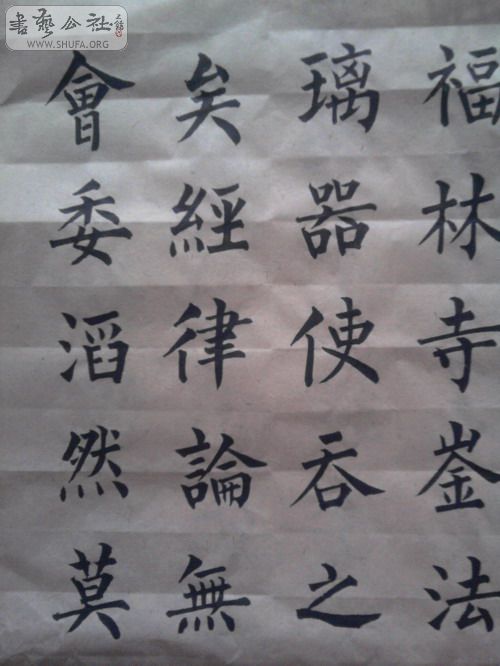 書藝公社
WWW.SHUFA.ORG
福林寺崟法
璃器使吞之
矣經律論無
會委滔然莫